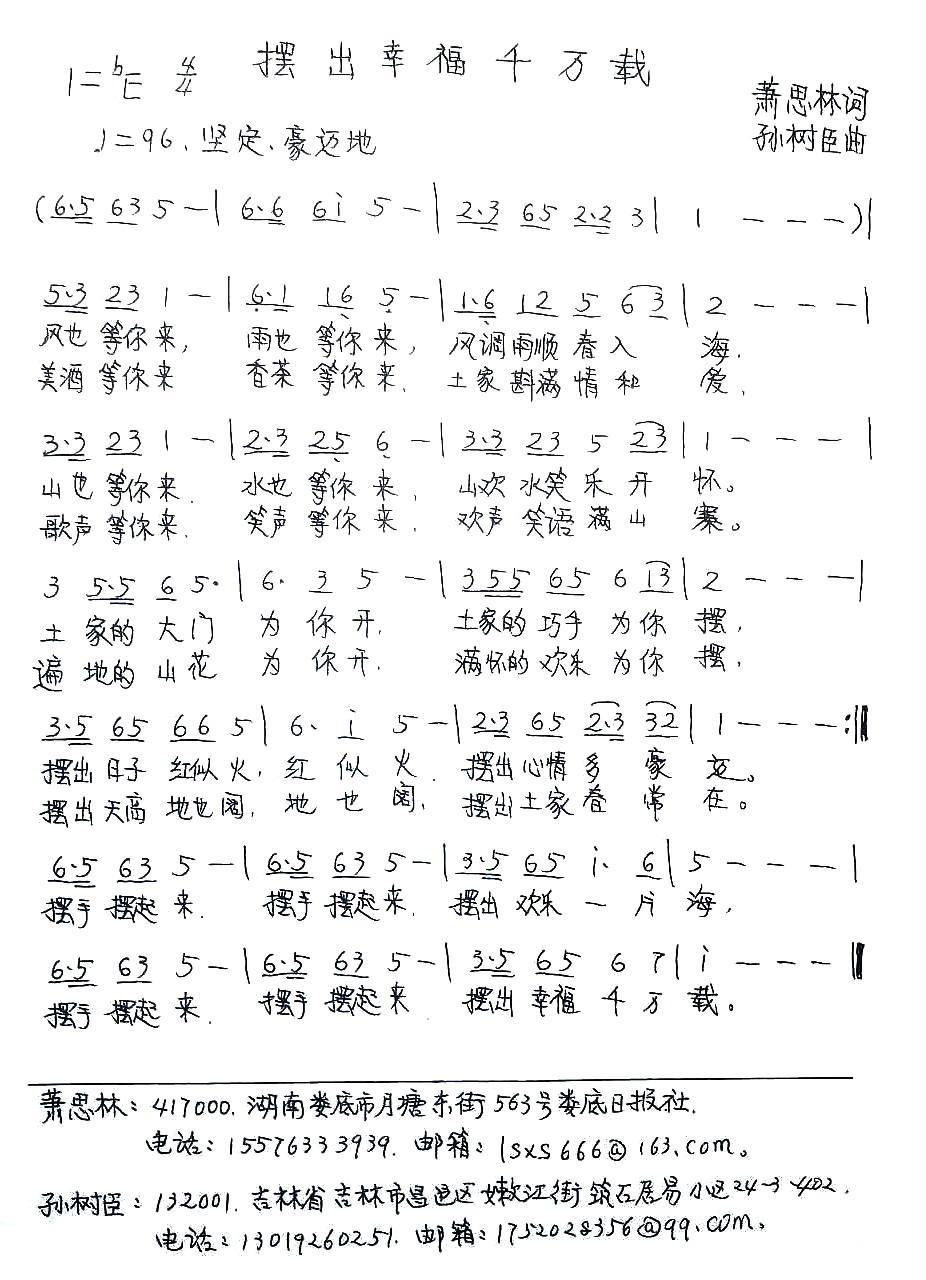 摆出幸福千万载
1=ᵇE 4/4
萧思林词
♩=96、坚定、豪迈地
孙树臣曲
(6·5 63 5 - | 6·6 6i 5 - | 2·3 65 2·2 3 | 1 - - - )|
5·3 23 1 - | 6·1 16 5 - | 1·6 12 5 63 | 2 - - - |
风也等你来, 雨也等你来, 风调雨顺春入海.
美酒等你来 香茶等你来. 土家斟满情和爱,
3·3 23 1 - | 2·3 25 6 - | 3·3 23 5 23 | 1 - - - |
山也等你来. 水也等你来, 山欢水笑乐开怀。
歌声等你来. 笑声等你来. 欢声笑语满山寨。
3 5·5 6 5· | 6· 3 5 - | 3 55 65 6 i3 | 2 - - - |
土家的大门为你开. 土家的巧手为你摆,
遍地的山花为你开. 满怀的欢乐为你摆,
3·5 65 66 5 | 6· i 5 - | 2·3 65 2·3 32 | 1 - - - :‖
摆出日子红似火, 红似火. 摆出心情多豪迈。
摆出天高地也阔, 地也阔, 摆出土家春常在。
6·5 63 5 - | 6·5 63 5 - | 3·5 65 i· 6 | 5 - - - |
摆手摆起来. 摆手摆起来. 摆出欢乐一片海,
6·5 63 5 - | 6·5 63 5 - | 3·5 65 6 7 | i - - - ‖
摆手摆起来. 摆手摆起来 摆出幸福千万载。
萧思林: 417000. 湖南娄底市月塘东街563号娄底日报社.
电话: 15576333939. 邮箱: lsxs666@163.com。
孙树臣: 132001. 吉林省吉林市昌邑区嫩江街筑石居易小区24-3-402.
电话: 13019260251. 邮箱: 1752028356@qq.com。